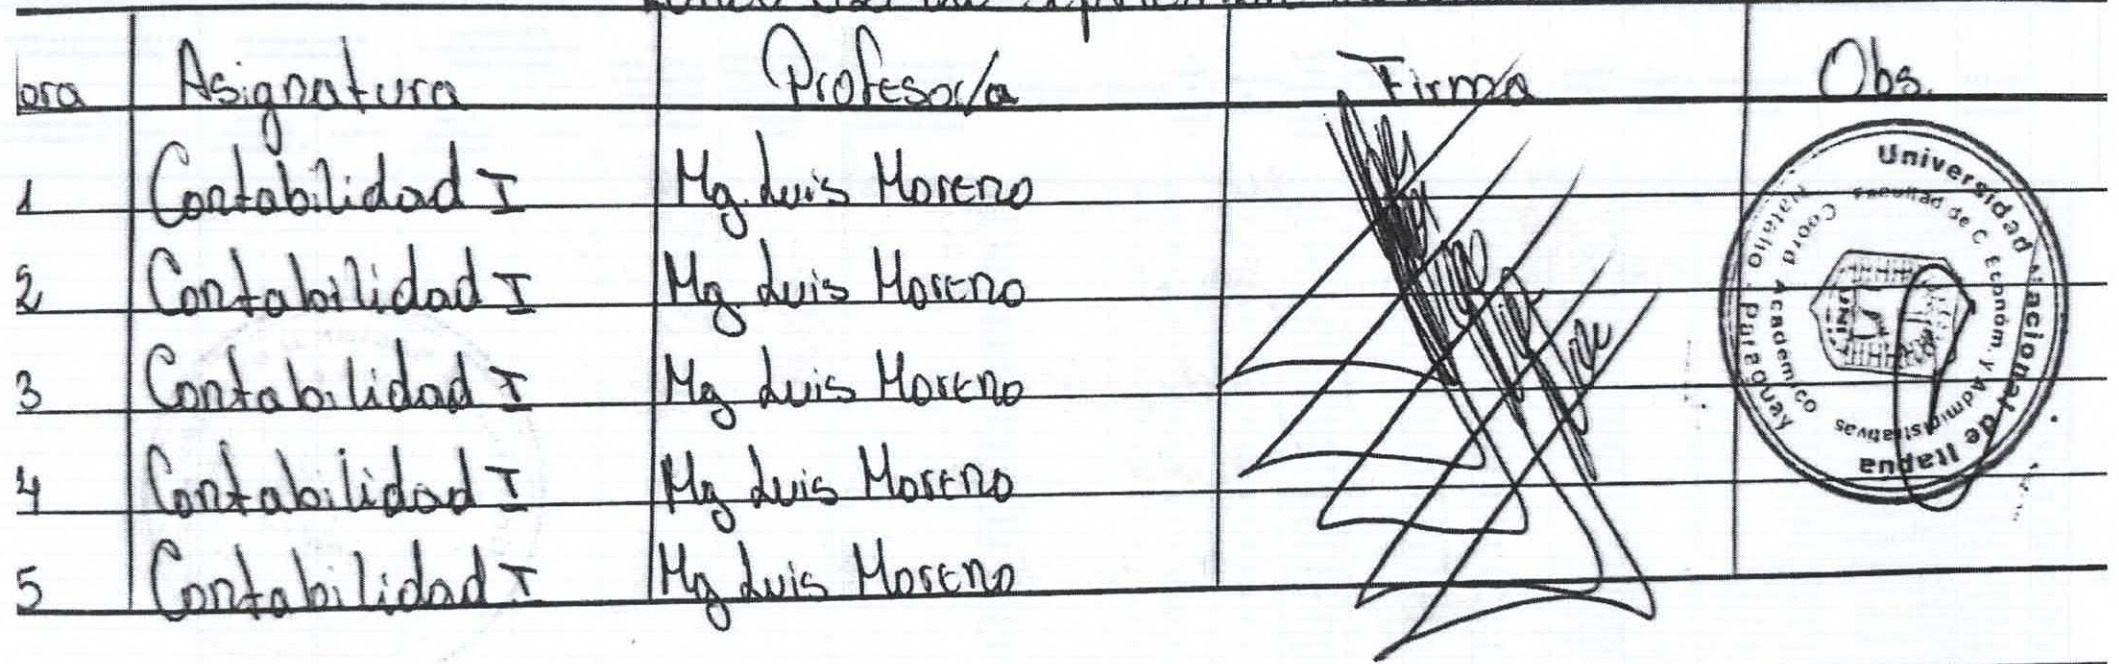 ora Asignatura Profesor/a Firma Obs.
1 Contabilidad I Mg. Luis Moreno
2 Contabilidad I Mg. Luis Moreno
3 Contabilidad I Mg Luis Moreno
4 Contabilidad I Mg Luis Moreno
5 Contabilidad I Mg Luis Moreno
Universidad Nacional de Itapua
Facultad de C. Económ. y Administrativas
Coord Académico
Natalio - Paraguay
UNI